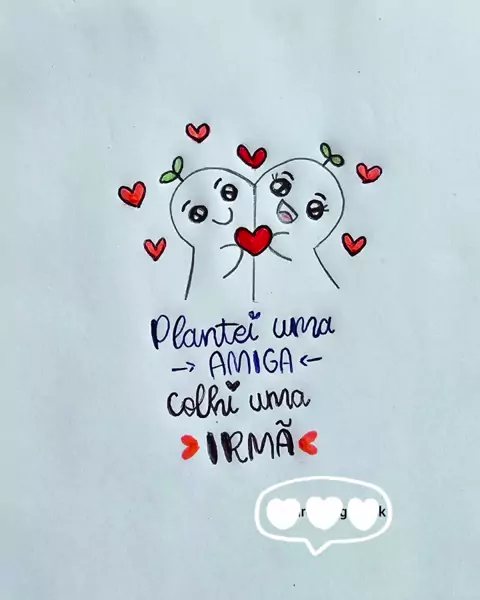 Plantei uma
AMIGA
Colhi uma
IRMÃ